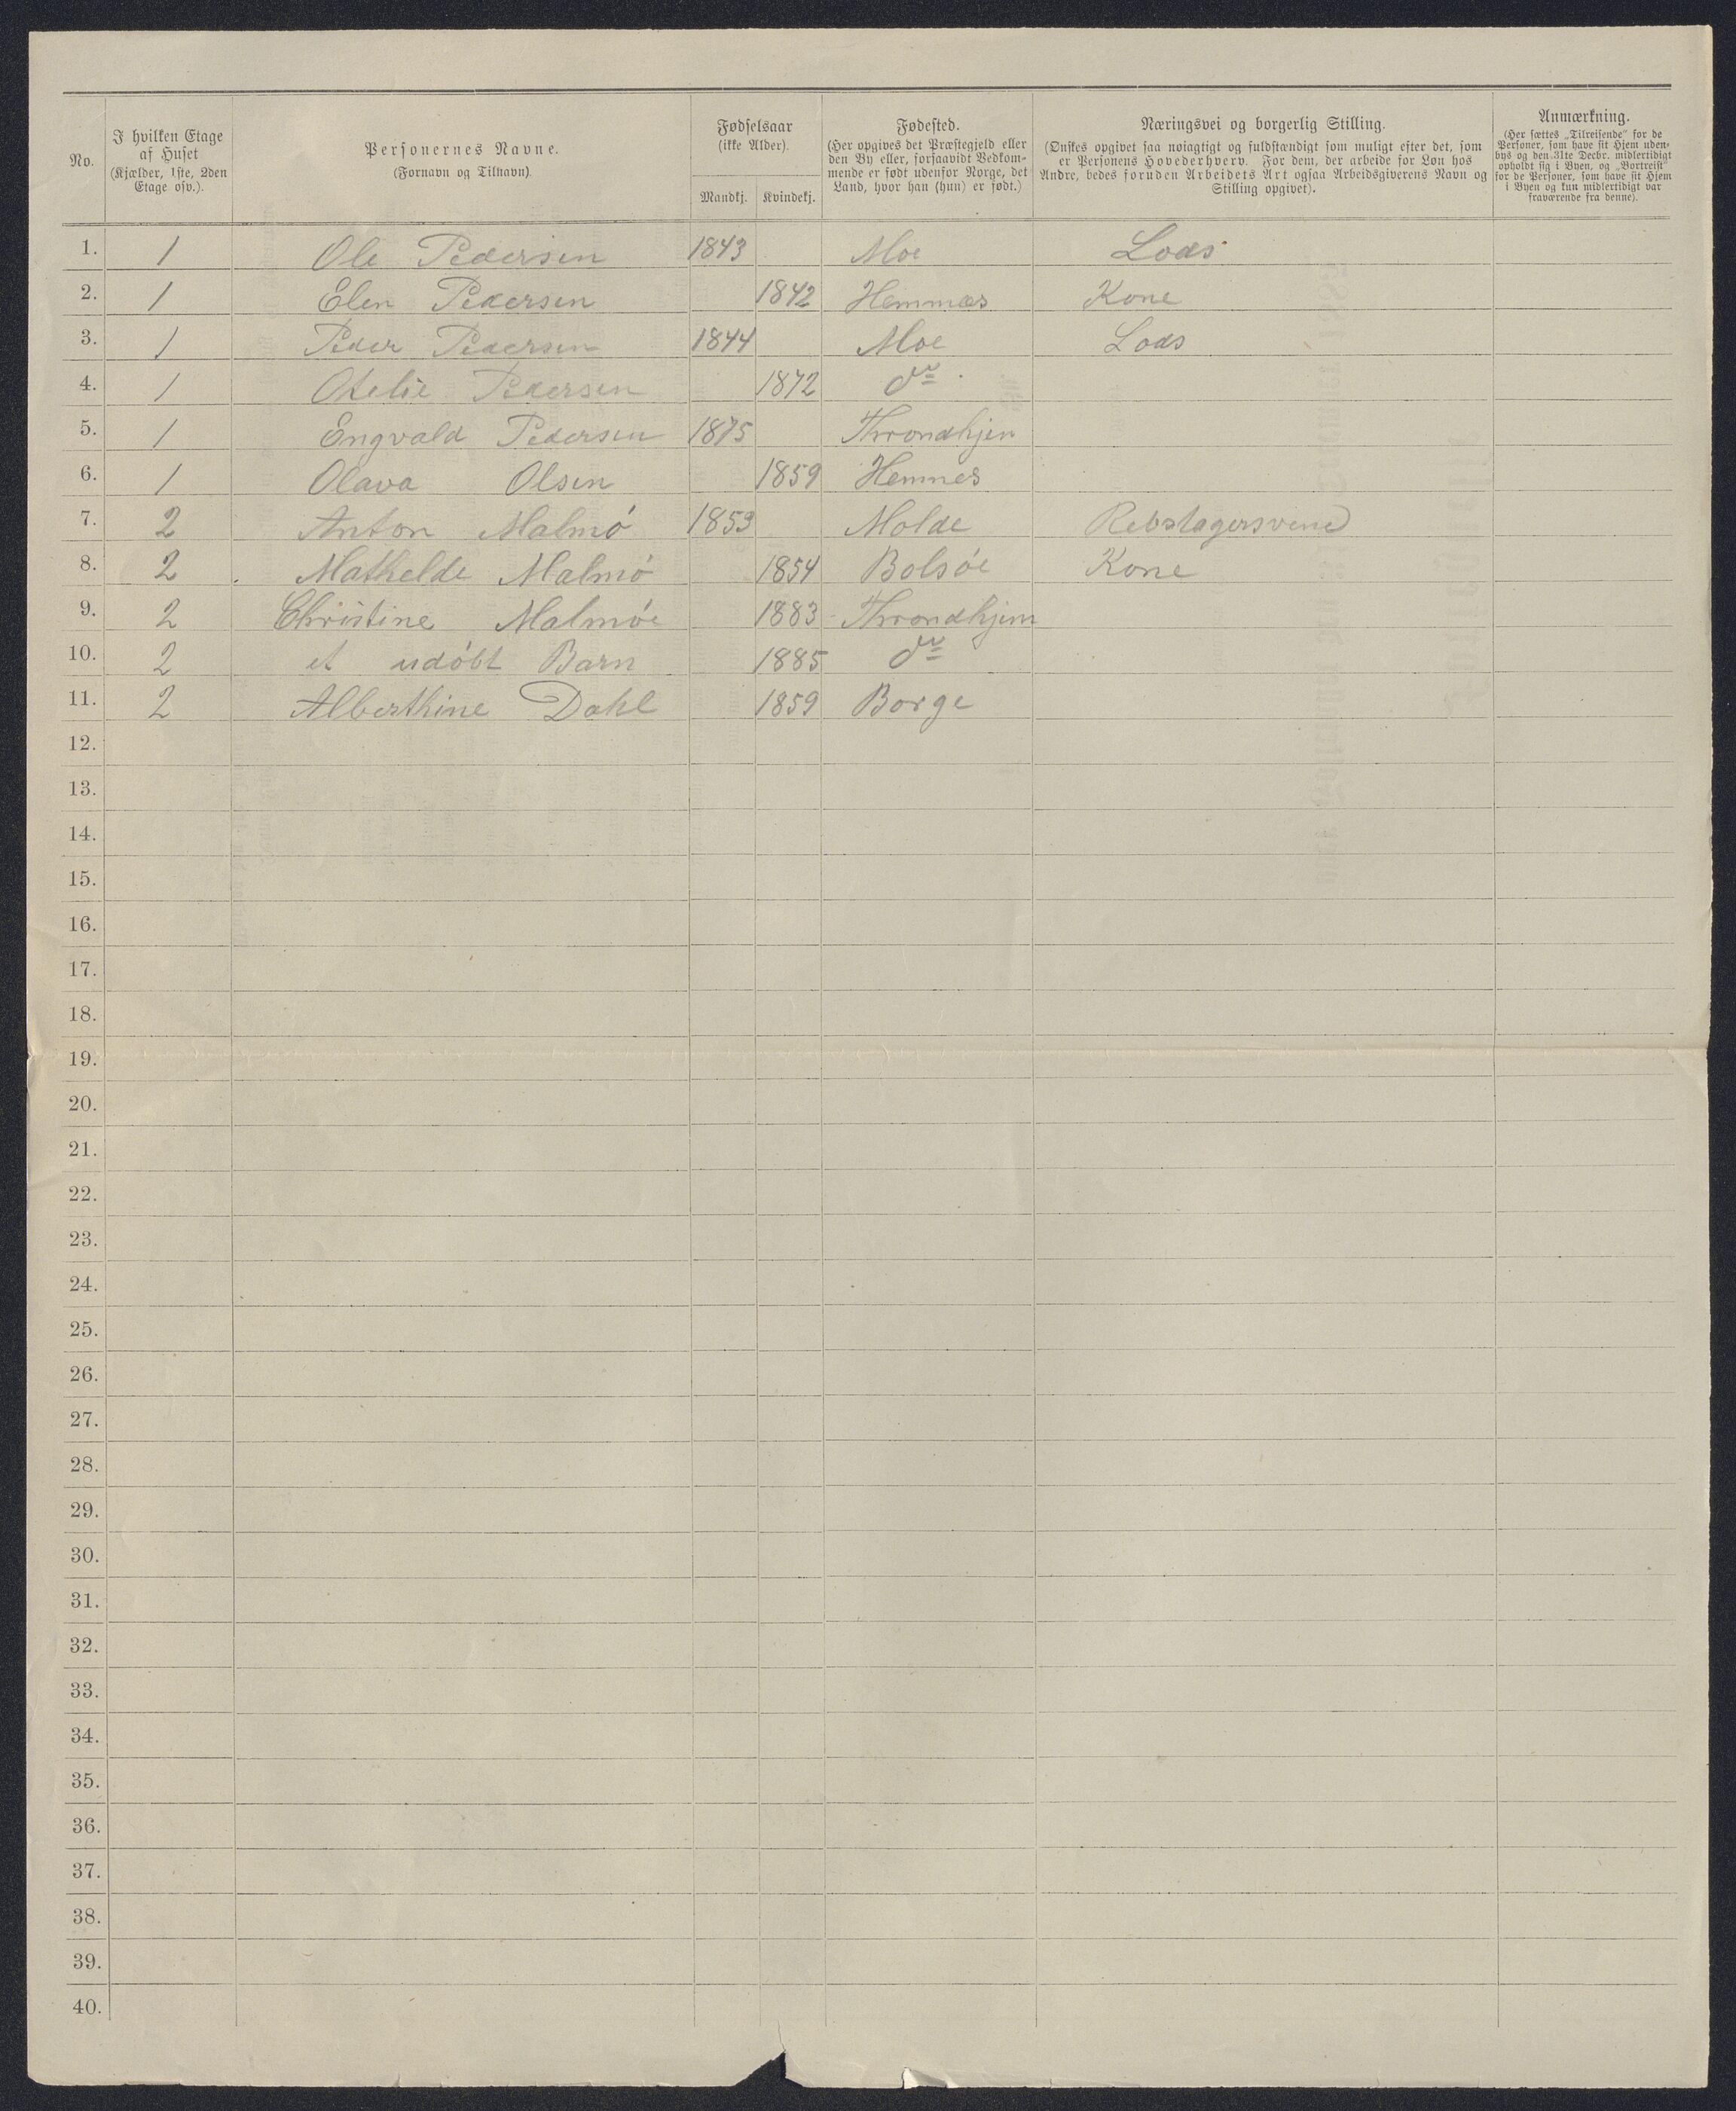 No.
I hvilken Etage af Huset (Kjælder, 1ste, 2den Etage osv.).
Personernes Navne. (Fornavn og Tilnavn).
Fødselsaar (ikke Alder).
Mandkj. Kvindekj.
Fødested. (Her opgives det Præstegjeld eller den By eller, forsaavidt Vedkommende er født udenfor Norge, det Land, hvor han (hun) er født.)
Næringsvei og borgerlig Stilling. (Ønskes opgivet saa nøiagtigt og fuldstændigt som muligt efter det, som er Personens Hovederhverv. For dem, der arbeide for Løn hos Andre, bedes foruden Arbeidets Art ogsaa Arbeidsgiverens Navn og Stilling opgivet).
Anmærkning. (Her sættes „Tilreisende" for de Personer, som have sit Hjem udenbys og den 31te Decbr. midlertidigt opholdt sig i Byen, og „Bortreist" for de Personer, som have sit Hjem i Byen og kun midlertidigt var fraværende fra denne).
1. 1 Ole Pedersen 1843 Moe Lods
2. 1 Elen Pedersen 1842 Hemmæs Kone
3. 1 Peder Pedersen 1844 Moe Lods
4. 1 Otelie Pedersen 1872 do
5. 1 Engvald Pedersen 1875 Throndhjen
6. 1 Olava Olsen 1859 Hemnes
7. 2 Anton Malmö 1853 Molde Rebslagersvend
8. 2 Mathelde Malmö 1854 Bolsöe Kone
9. 2 Christine Malmöe 1883 Throndhjem
10. 2 et udöbt Barn 1885 do
11. 2 Alberthine Dahl 1859 Borge
12.
13.
14.
15.
16.
17.
18.
19.
20.
21.
22.
23.
24.
25.
26.
27.
28.
29.
30.
31.
32.
33.
34.
35.
36.
37.
38.
39.
40.